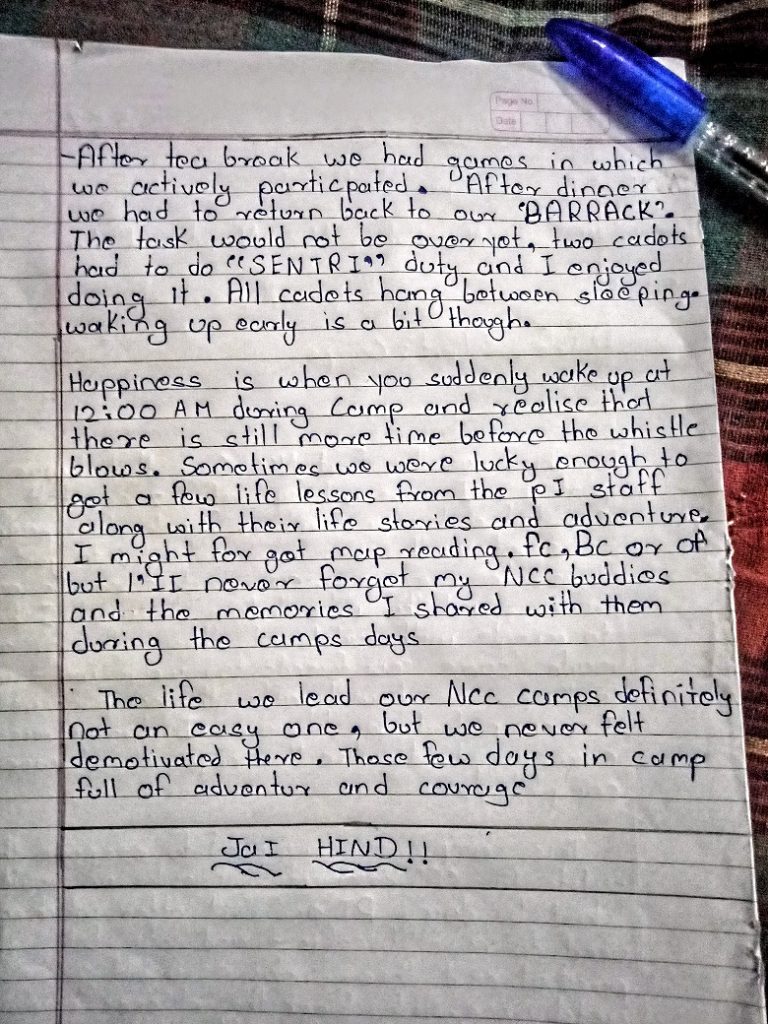 Page No.
Date
-After tea break we had games in which
we actively particpated. After dinner
we had to return back to our "BARRACK".
The task would not be over yet, two cadets
had to do "SENTRI" duty and I enjoyed
doing it. All cadets hang between sleeping.
waking up early is a bit though.
Happiness is when you suddenly wake up at
12:00 AM durring Camp and realise that
there is still more time before the whistle
blows. Sometimes we were lucky enough to
get a few life lessons from the PI staff
along with their life stories and adventure.
I might for get map reading. fc, Bc or of
but I'II never forget my NCC buddies
and the memories I shared with them
durring the camps days
The life we lead our NCC camps definitely
not an easy one, but we never felt
demotivated Here. Those few days in camp
full of adventur and courage
JaI HIND!!